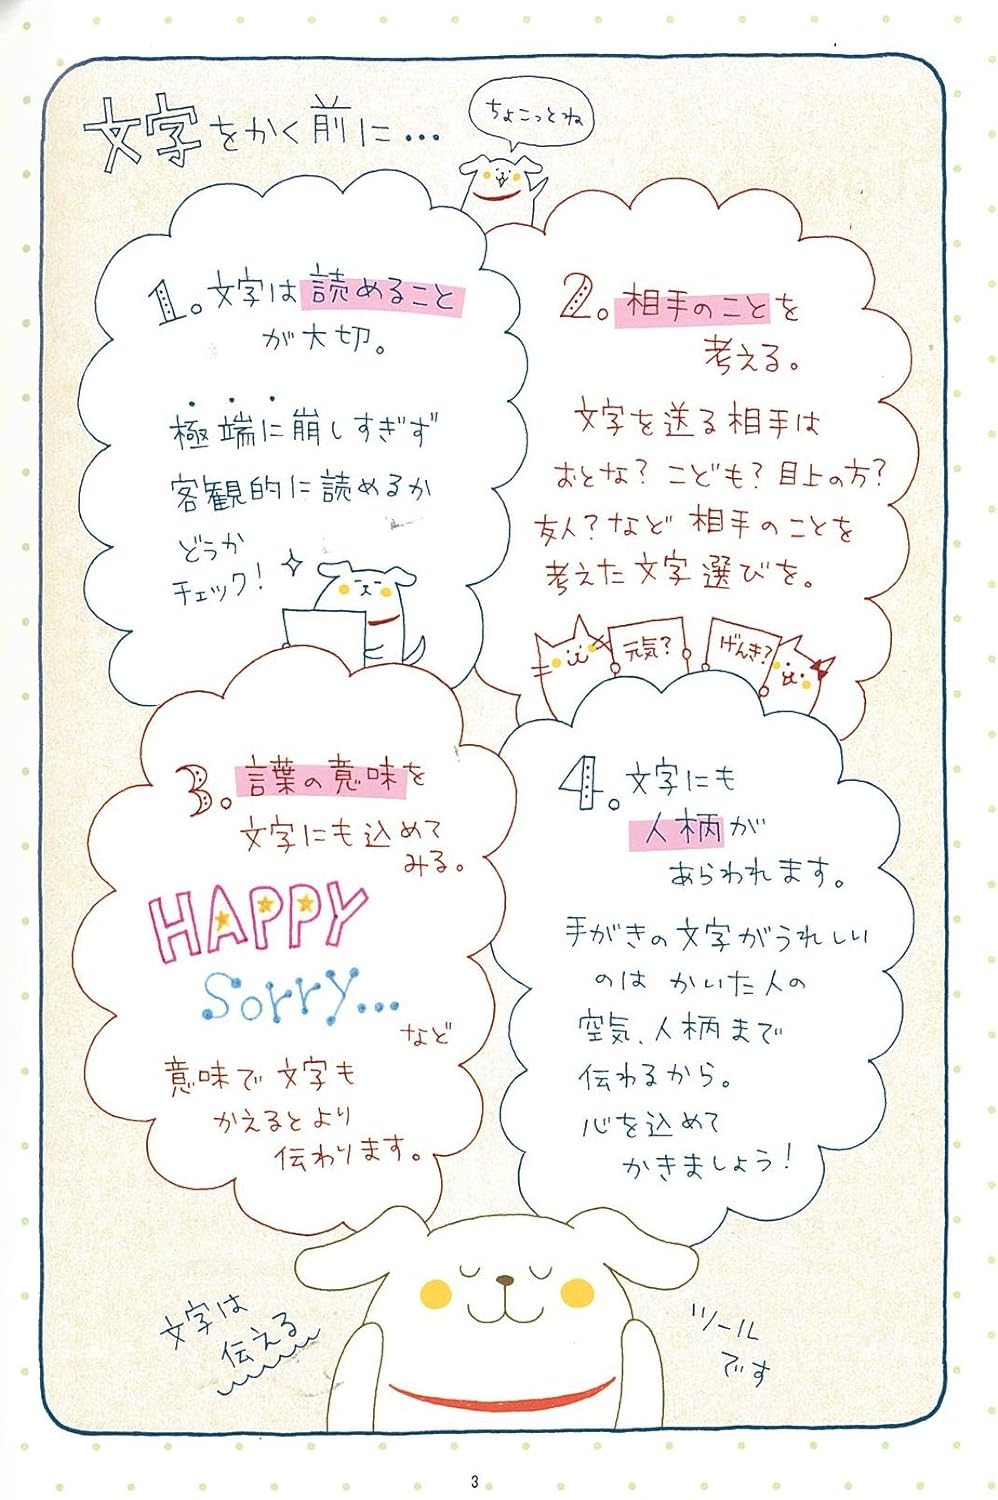 文字をかく前に…
ちょこっとね
1. 文字は読めること
が大切。
極端に崩しすぎず
客観的に読めるか
どうか
チェック!
2. 相手のことを
考える。
文字を送る相手は
おとな? こども? 目上の方?
友人? など 相手のことを
考えた文字選びを。
元気?
げんき?
3. 言葉の意味を
文字にも込めて
みる。
HAPPY
Sorry...
など
意味で文字も
かえるとより
伝わります。
4. 文字にも
人柄が
あらわれます。
手がきの文字がうれしい
のは かいた人の
空気、人柄まで
伝わるから。
心を込めて
かきましょう!
文字は
伝える
ツール
です
3